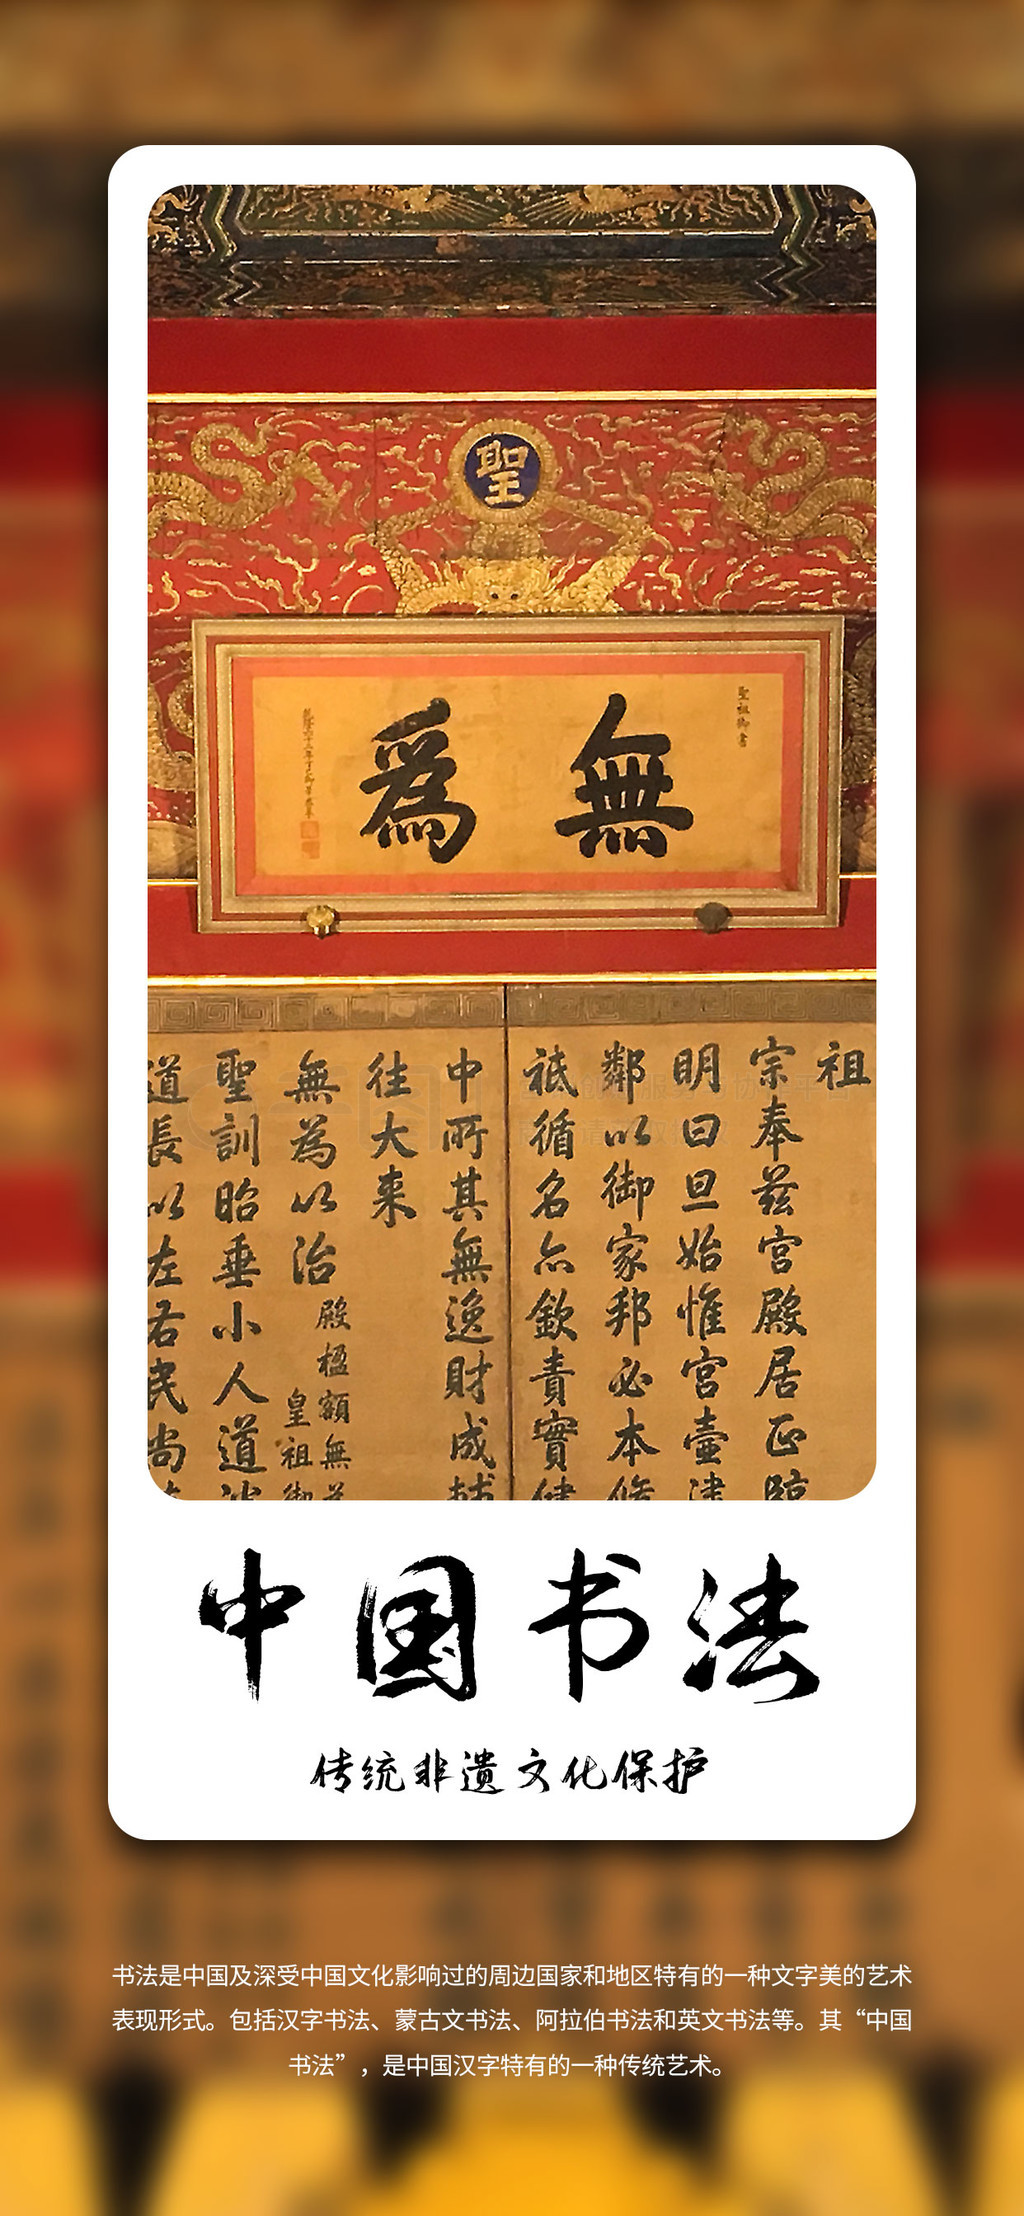 聖
聖祖御書
無爲
祖
宗奉茲宮殿居正臨
明曰旦始惟宮壼
鄰以御家邦必本修
祗循名亦欽責實
中所其無逸財成輔
往大来
無為以治
殿楹額無
皇祖御
聖訓昭垂小人道
道長以左右民尚
中国书法
传统非遗文化保护
书法是中国及深受中国文化影响过的周边国家和地区特有的一种文字美的艺术
表现形式。包括汉字书法、蒙古文书法、阿拉伯书法和英文书法等。其“中国
书法”，是中国汉字特有的一种传统艺术。